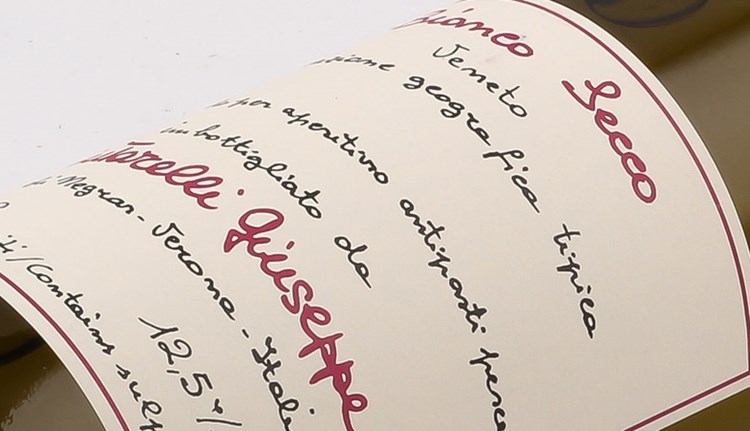 Bianco Secco
Veneto
geografica tipica
per aperitivo antipasti
imbottigliato da
Giuseppe
Negrar - Verona - Itali
/Contains
12,5%